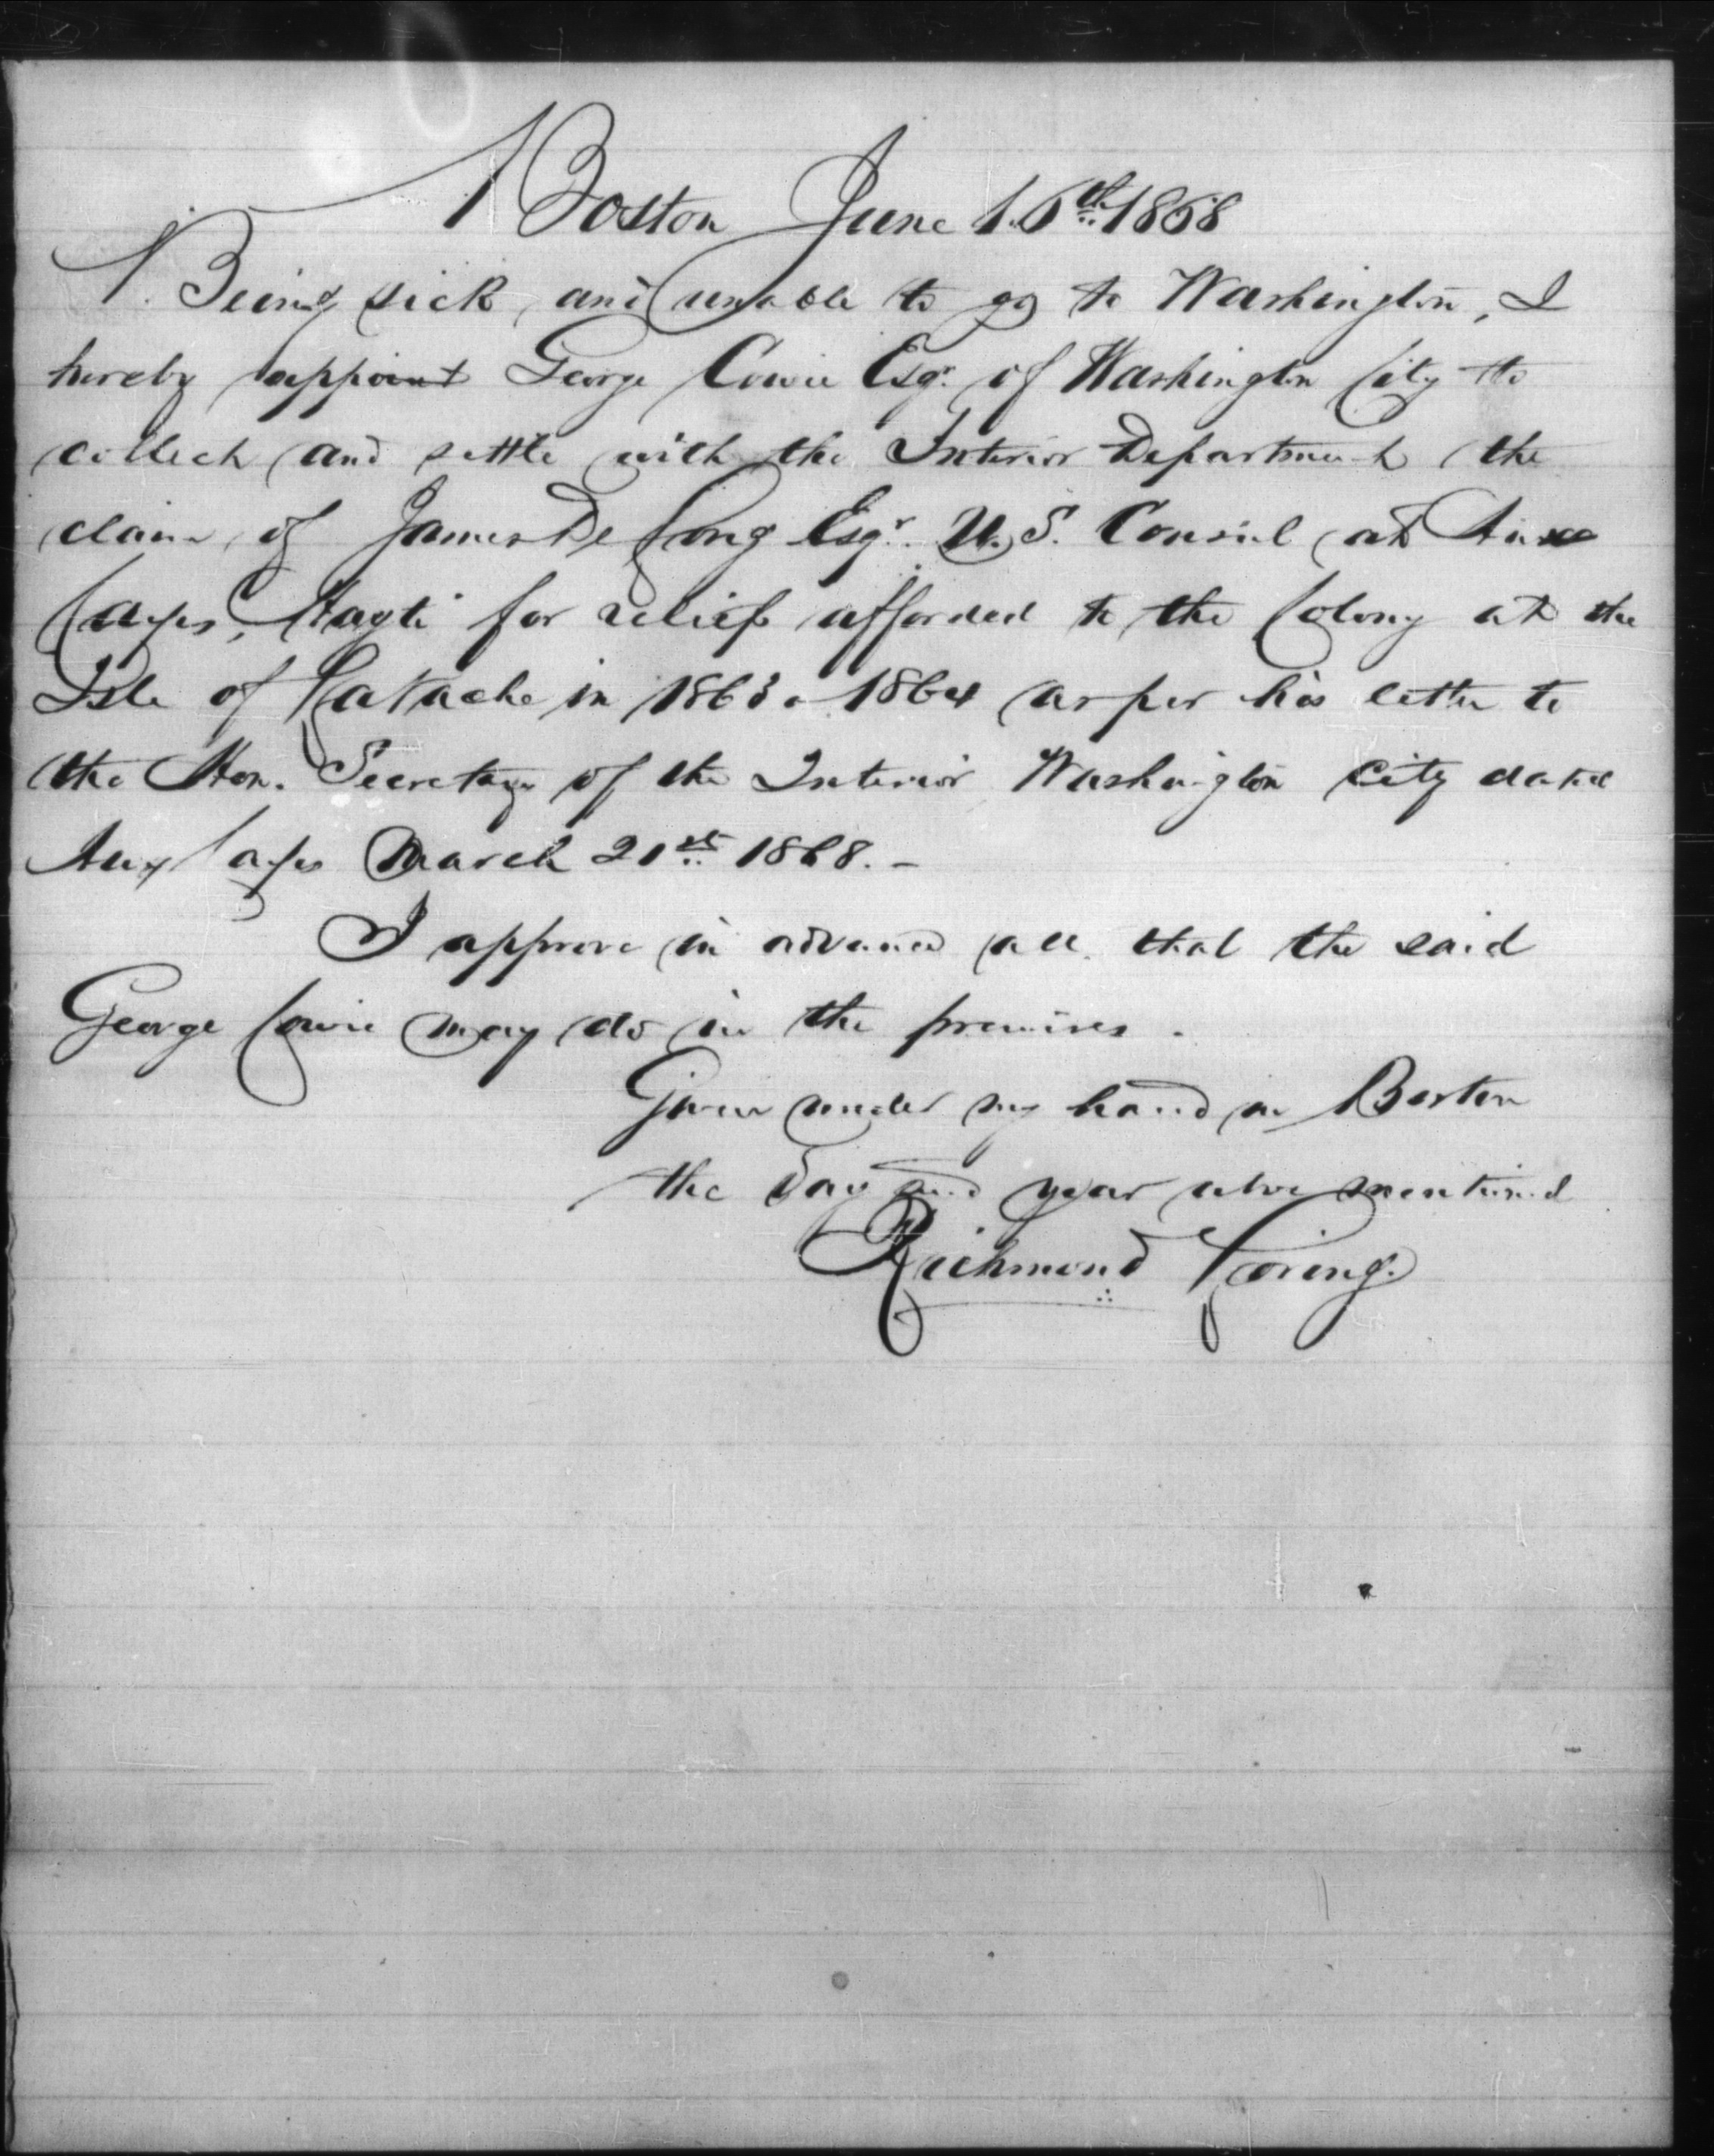 Boston June 16th 1868
Being sick and unable to go to Washington, I
hereby appoint George Cowie Esqr. of Washington City to
collect and settle with the Interior Department the
claim of James De Long Esqr. U.S. Consul at Aux
Cayes, Hayti for relief afforded to the Colony at the
Isle of Vatache in 1863 & 1864 as per his letter to
the Hon. Secretary of the Interior Washington City dated
Aux Cayes March 21st 1868. -
I approve in advance all that the said
George Cowie may do in the premises.
Given under my hand in Boston
the day and year above mentioned
Richmond Loring